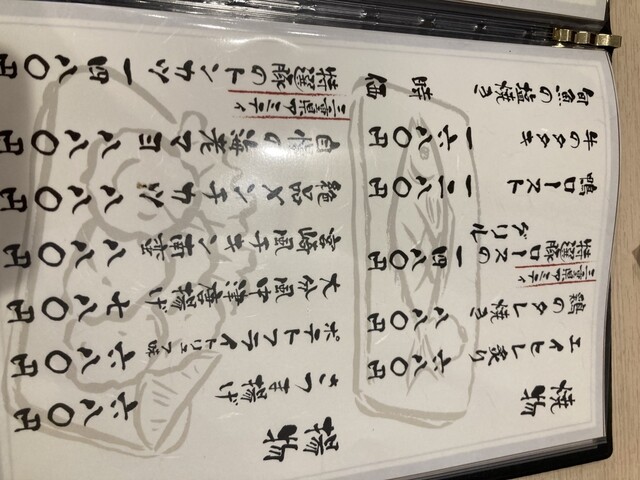 焼物
エイヒレ炙り 六八〇円
鶏のタレ焼き 八八〇円
三重県
特選豚ロースのグリル 一四八〇円
鴨ロースト 一二八〇円
牛のタタキ 一六八〇円
旬魚の塩焼き 時価
揚物
さつま揚げ 六八〇円
ポテトフライ トリュフ味 六八〇円
大分風中津唐揚げ 七八〇円
宮崎風チキン南蛮 八八〇円
絶品メンチカツ 八八〇円
自慢の海老マヨ 八八〇円
三重県
特選豚のトンカツ 一四八〇円